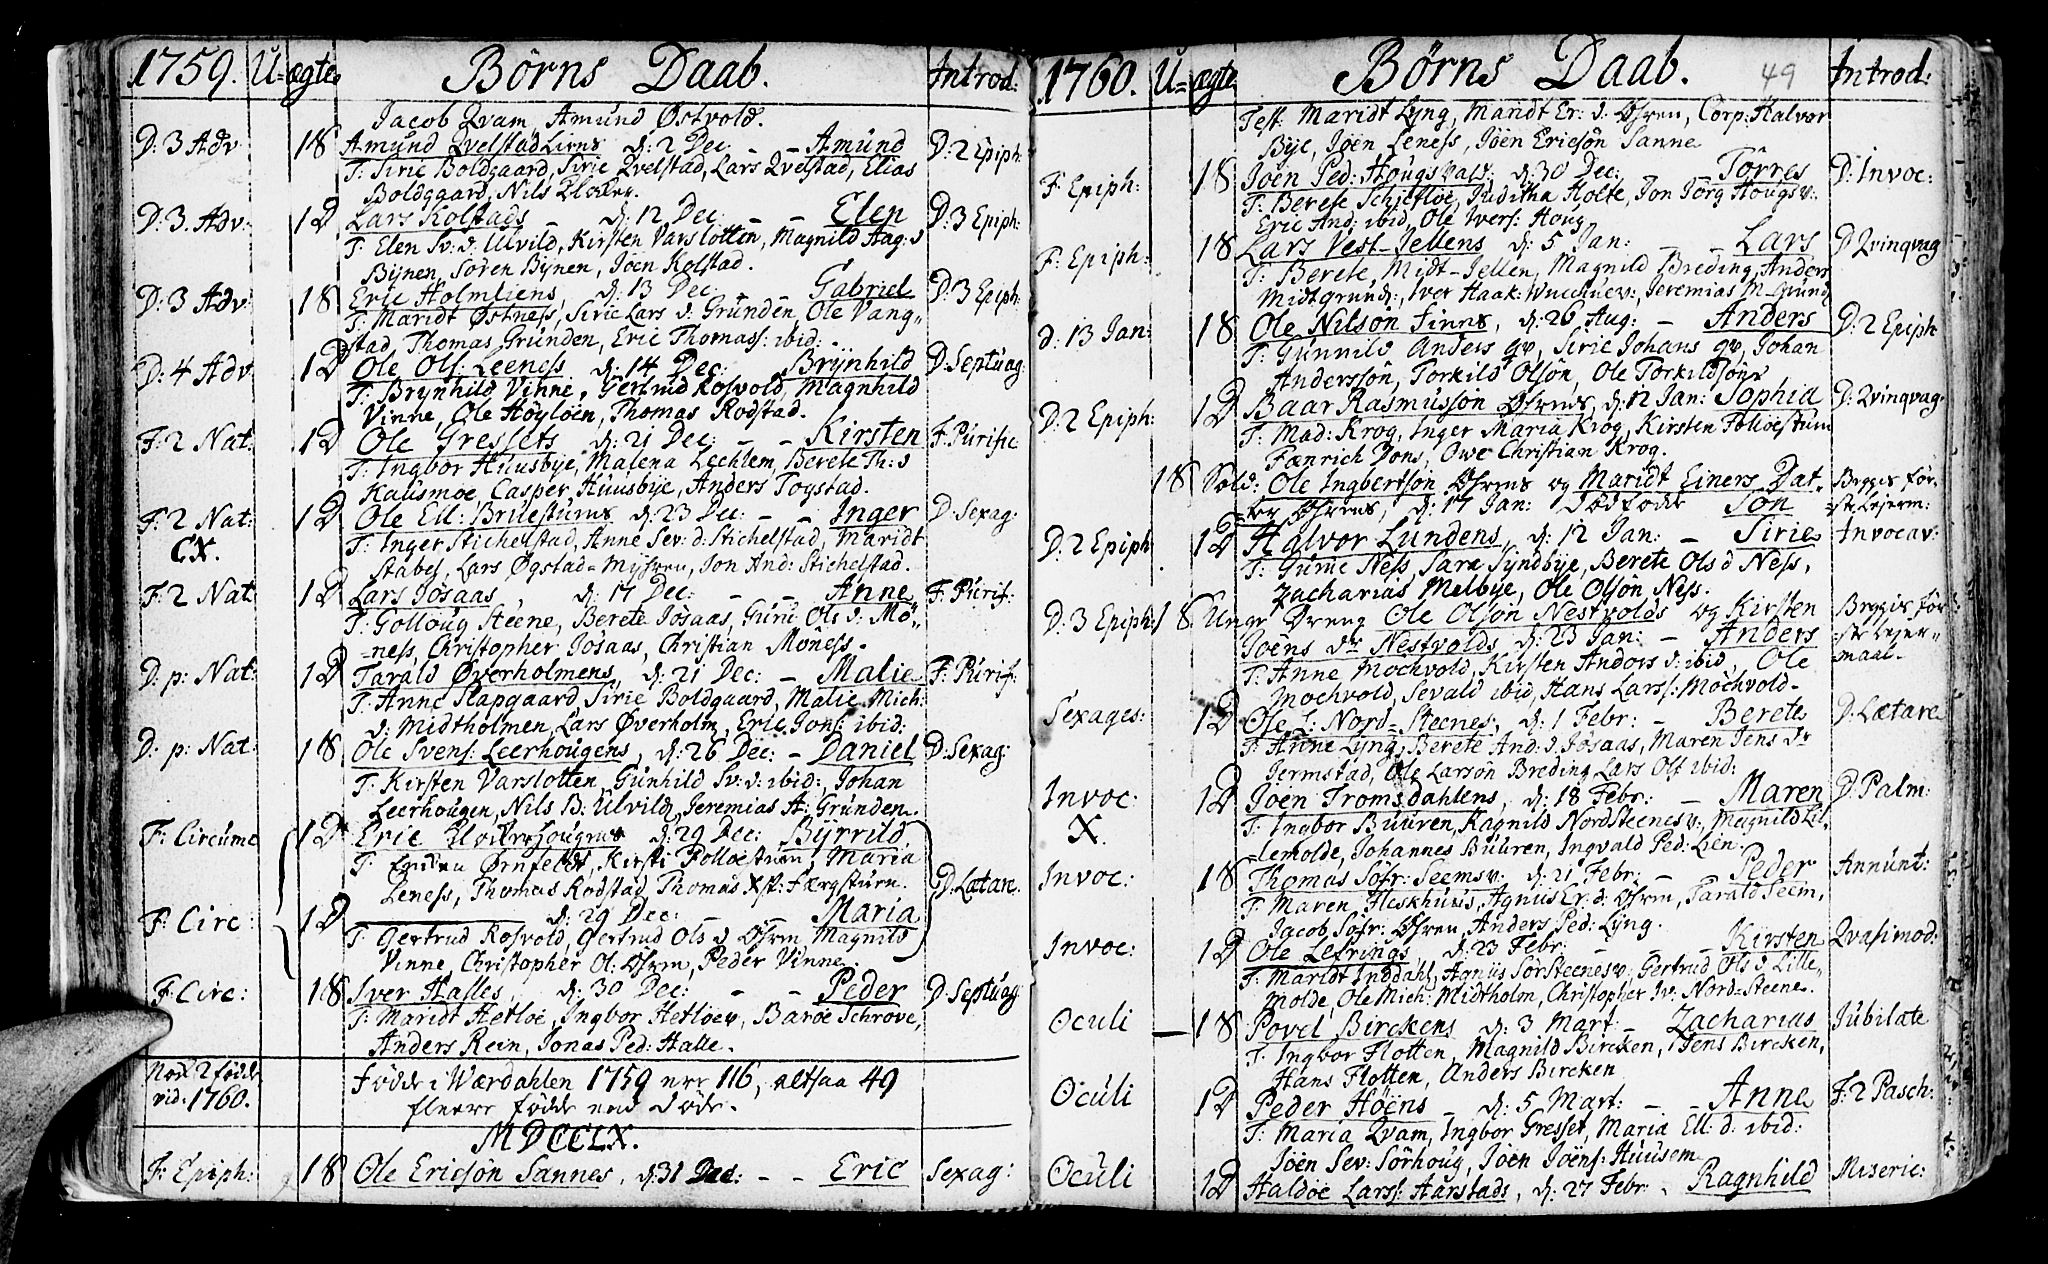 1759. U= ægte Börns Daab. Introd:
Jacob Qvam, Amund Østvold.
D: 3 Adv 18 Amund Qvelstad Liens d: 2 Dec - - Amund D: 2 Epiph:
T: Siric Boldgaard, Siric Qvelstad, Lars Qvelstad, Elias
Boldgaard, Nils
D: 3 Adv: 1D Lars Kolstads - d: 12 Dec: - - Elen D: 3 Epiph:
T: Elen Sv: d: Ulvild, Kirsten Varslotten, Magnild Aag: d
Bynen, Sören Bynen, Jöen Kolstad.
D: 3 Adv: 18 Eric Holmliens, d: 13 Dec: - Gabriel D: 3 Epiph:
T: Maridt Østness, Siric Lars d: Grunden, Ole Vang„
stad, Thomas Grunden, Eric Thomass: ibid:.
D: 4 Adv 1D Ole Ols: Leeness, d: 14 Dec: Brÿnhild D: Septuag:
T: Brynhild Vinne, Gertrud Rosvold, Magnhild
Vinne, Ole Höylöen, Thomas Rodstad.
F: 2 Nat: 1D Ole Gressets d: 21 Dec: - - Kirsten F: Purific
T: Ingbor Huusbye, Malena Lechlem, Berete Th: d
Kausmoe, Casper Huusbye, Anders Togstad.
F: 2 Nat: 1D Ole Ell: Bruesturns d: 23 Dec: - - Inger D: Sexag:
CX.
T: Inger Stichelstad, Anne Sev: d: Stichelstad, Maridt
Stabel, Lars Øgstad=Mÿhren, Jon And: Stichelstad.
F: 2 Nat 1D Lars Jösaas, d: 17 Dec: - - Anne F: Purif:
T: Gollöug Steene, Berete Jösaas, Guru Ols d: Mö„
=ness, Christopher Jösaas, Christian Möness.
D: p: Nat: 1D Tarald Øverholmens, d: 21 Dec: - Malie F: Purif:
T: Anne Slapgaard, Siric Boldgaard, Malie Mich:
d: Midtholmen, Lars Øverholm, Eric Jons: ibid:
D: p: Nat: 18 Ole Svens: Leerhougens, d: 26 Dec: - Daniel D: Sexag:
T: Kirsten Varslotten, Gunhild Sv: d: ibid:, Johan
Leerhougen, Nils B: Ulvild, Jeremias A: Grunden.
F: Circume 1D Eric d: 29 Dec: Byrrild
T: Ørnfeldt, Kirsti Folloestuen, Maria
Leness, Thomas Rodstad, Thomas Xst: Færgsturn. D: Lætare.
F: Circ: 1D d: 29 Dec: - - Maria
T: Gertrud Rosvold, Gertrud Ols d Øhrn, Magnild
Vinne, Christopher Ol: Øhrn, Peder Vinne.
F: Circ: 18 Iver Halles, d: 30 Dec: - - Peder D: Septuag:
T: Maridt Hetloe, Ingbor Hetloev, Baroe Schrove,
Anders Rein, Jonas Ped: Halle.
Nod 2 fødde
vid: 1760.
Fødde i Wærdahlen 1759 ere 116, altsaa 49
fleere fødde end døde.
MDCCLX.
F: Epiph: 18 Ole Ericsön Sannes, d: 31 Dec: - - Eric Sexag:
1760. U= ægte Börns Daab. 49 Introd:
Test: Maridt Lyng, Maridt Er: d: Øhren, Corp: Halvor
Bye, Jöen Leness, Jöen Ericsön Sanne
F: Epiph: 18 Jöen Ped: Hougsvald: d: 30 Dec: Törres D: Invoc:
T: Berete Schjefloe, Juditha Holte, Jon Törg Hougsv:
Eric And: ibid, Ole Ivers: Houg
F: Epiph: 18 Lars Vest-Jellens d: 5 Jan: - - Lars D: Qvinqvag
T: Berete Midt-Jellen, Magnild Breding, Anders
Midtgrund:, Iver Haak: Wucchuev:, Jeremias M-Grund
d: 13 Jan: 18 Ole Nilsön Finns, d: 26 Aug: - Anders D: 2 Epiph
T: Gunnild Anders qv, Siric Johans qv, Johan
Anderssön, Torkild Olsön, Ole Torkildsöns
D: 2 Epiph: 1D Baar Rasmusson Øhrens, d: 12 Jan: Sophia D: Qvinqvag:
T: Mad: Krog, Inger Maria Krog, Kirsten Folloestuen
Fænrich Dons, Owe Christian Krog.
18 Sold: Ole Ingbertsön Øhrens og Maridt Einers Dat„ Begges før„
=ter Øhrens, d: 17 Jan: Dödfödt Sön =ste Lejerm:
D: 2 Epiph 1D Halvor Lundens, d: 12 Jan: - Siric Invocav:
T: Gurue Ness, Sara Syndbye, Berete Ols d Ness,
Zacharias Melbye, Ole Olsön Ness.
D: 3 Epiph: 18 Unge Dreng Ole Olsön Nestvolds og Kirsten Begges før
Jöens dr Nestvolds d: 23 Jan: - Anders =ste Lejer=
T: Anne Mochvold, Kirsten Anders d: ibid, Ole maal.
Mochvold, Sevald ibid, Hans Larss: Möchvold.
Sexages: 1D Ole L: Nord=Steenes, d: 1 Febr: - Berete D: Lætare
T: Anne Lyng, Berete And: d Jösaas, Maren Jens dr
Jermstad, Ole Larsön Breding, Lars Ols ibid:
Invoc: 1D Jöen Tromsdahlens, d: 18 Febr: - Maren D: Palm:
X.
T: Ingbor Buuren, Ragnild Nordsteenesv:, Magnild Lil„
=lemolde, Johannes Buuren, Ingvald Ped: Lien.
Invoc: 18 Thomas Sofr: Seemsv: d: 21 Febr: - Peder Annunt:
T: Maren Heskhuus, Agnus Er: d: Øhrn, Tarald Seem,
Jacob Sofr: Øhren, Anders Ped: Lyng.
Invoc: 1D Ole Lefrings, d: 23 Febr: - - Kirsten Qvasimod:
T: Maridt Inddahl, Agnus Sörsteenesv:, Gertrud Ols d Lille„
Molde, Ole Mich: Midtholm, Christopher Iv: Nord=Steene.
Oculi 18 Povel Birckens d: 3 Mart: - Zacharias Jubilate
T: Ingbor Flotten, Magnild Bircken, Jens Bircken,
Hans Flotten, Anders Bircken
Oculi 1D Peder Höens - d: 5 Mart: - - Anne F: 2 Pasch:
T: Maria Qvam, Ingbor Gresset, Maria Ell: d: ibid:
Jöen Sev: Sörhoug, Jöen Jöens: Huusem
Oculi 1D Haldoe Larss: Aarstads, d: 27 Febr - Ragnhild Miseric: